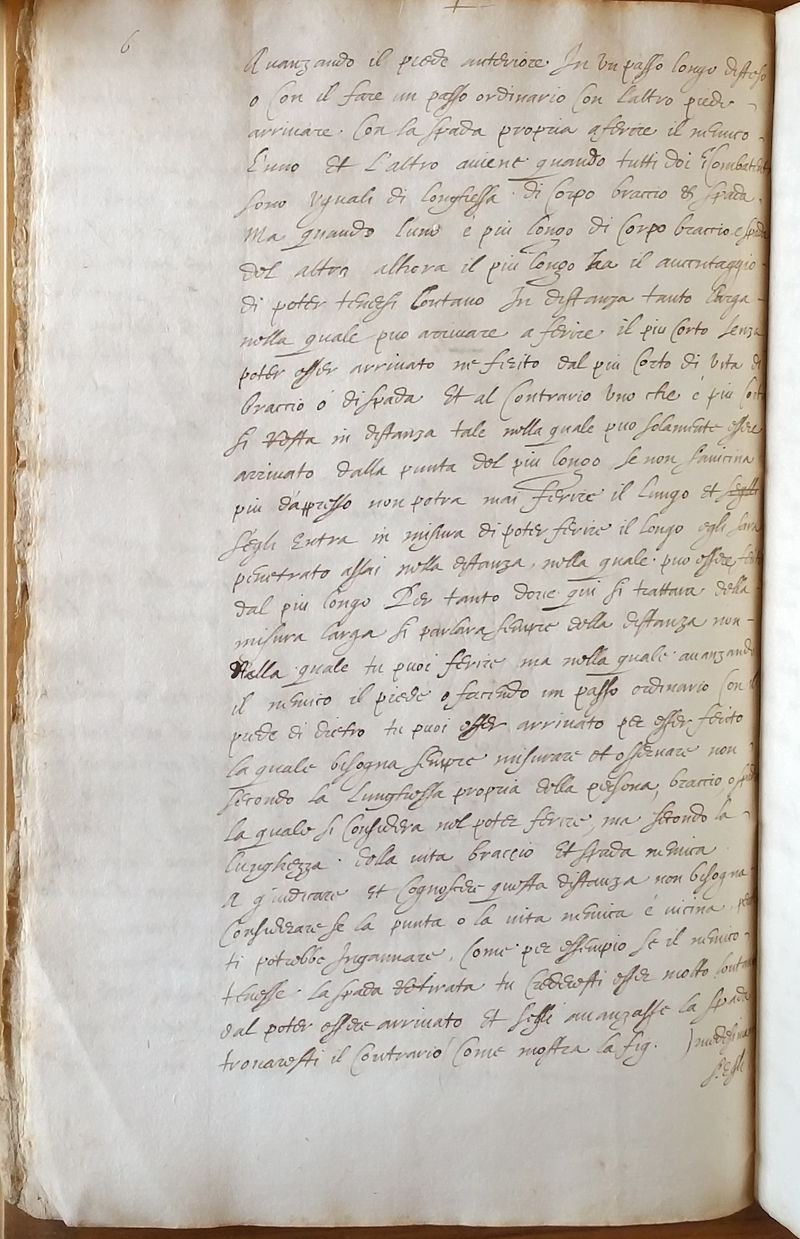 6
Auanzando il piede anteriore In un passo longo disteso
o con il fare un passo ordinario con l'altro piede
arriuare con la spada propria a ferire il nemico
L'uno et l'altro auiene quando tutti doi i Combatenti
sono uguali di longhessa di corpo braccio et spada.
Ma quando l'uno e più longo di corpo braccio e spada
del altro alhora il più longo ha il auantaggio
di poter tenersi lontano In distanza tanto larga
nella quale puo arriuare a ferire il piu corto senza
poter esser arriuato ne ferito dal piu corto di uita di
braccio ò di spada Et al contrario uno che è più corto
si resta in distanza tale nella quale puo solamente essere
arriuato dalla punta del più longo se non s'auicina
più d'apresso non potra mai ferire il lungo et
S'egli entra in misura di poter ferire il longo egli sara
penetrato assai nella distanza, nella quale puo essere ferito
dal piu longo Per tanto doue qui si trattara della
misura larga si parlara sempre della distanza non
nella quale tu puoi ferire ma nella quale auanzando
il nemico il piede o facendo un passo ordinario con il
piede di dietro tu puoi esser arriuato per esser ferito
la quale bisogna sempre misurare et osseruare non
secondo la lunghessa propria della persona, braccio, o spada
la quale si considera nel poter ferire, ma secondo la
lunghezza della uita braccio et spada nemica
A giudicare et cognoscere questa distanza non bisogna
considerare se la punta o la uita nemica è uicina, perche
ti potrebbe Ingannare, come per essempio se il nemico
tenesse la spada retirata tu crederesti esser molto lontano
dal poter essere arriuato et s'egli auanzasse la spada
trouaresti il contrario come mostra la fig. ) medesima
s'egli